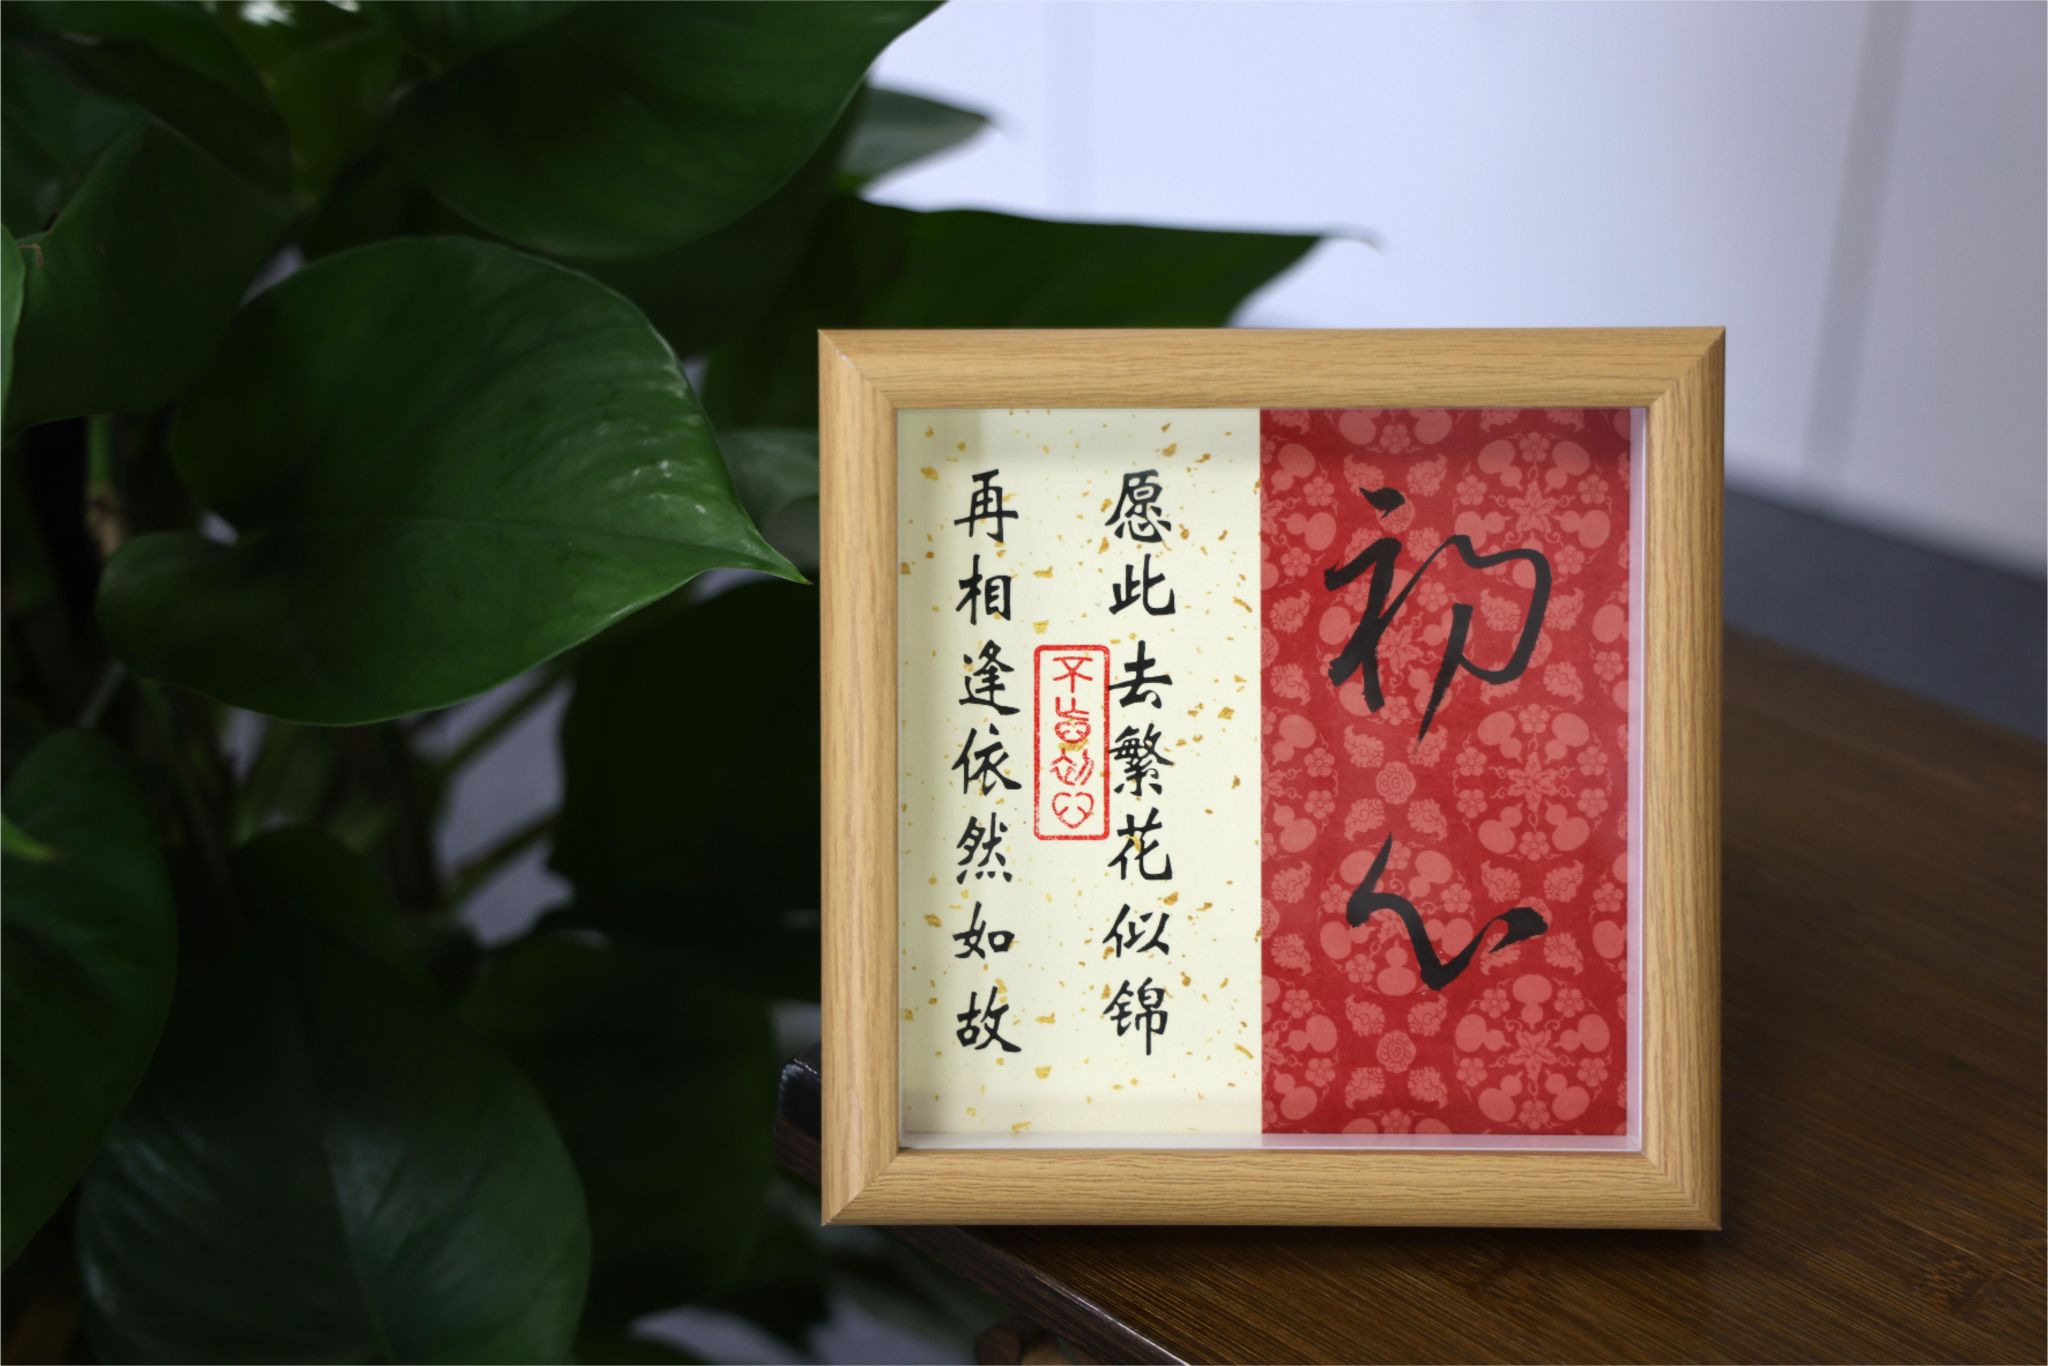 初心
愿此去繁花似锦
再相逢依然如故
不忘初心